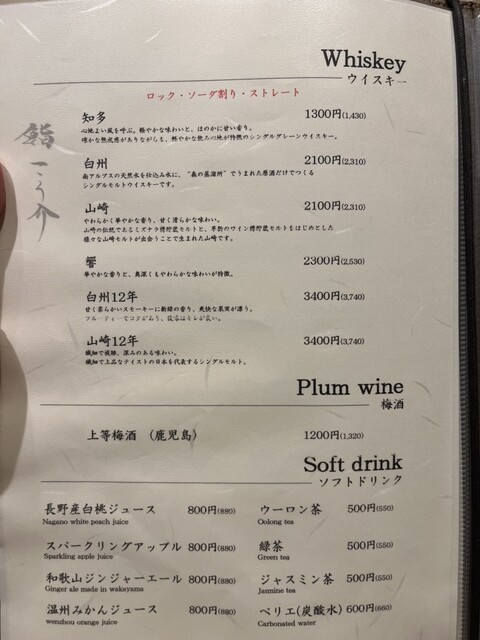 Whiskey
ウイスキー
ロック・ソーダ割り・ストレート
鮨 こう介
知多 1300円(1,430)
心地よい風を呼ぶ。軽やかな味わいと、ほのかに甘い香り。
確かな熟成感がありながらも、軽やかな飲み心地が特徴のシングルグレーンウイスキー。
白州 2100円(2,310)
南アルプスの天然水を仕込み水に、“森の蒸溜所”でうまれた原酒だけでつくる
シングルモルトウイスキーです。
山崎 2100円(2,310)
やわらかく華やかな香り、甘く滑らかな味わい。
山崎の伝統であるミズナラ樽貯蔵モルトと、革新のワイン樽貯蔵モルトをはじめとした
様々な山崎モルトが出会うことで生まれた山崎です。
響 2300円(2,530)
華やかな香りと、奥深くもやわらかな味わいが特徴。
白州12年 3400円(3,740)
甘く柔らかいスモーキーに新緑の香り、爽快な果実が漂う。
フルーティーでコクがあり、後味はキレが良い。
山崎12年 3400円(3,740)
繊細で複雑、深みのある味わい。
繊細で上品なテイストの日本を代表するシングルモルト。
Plum wine
梅酒
上等梅酒 (鹿児島) 1200円(1,320)
Soft drink
ソフトドリンク
長野産白桃ジュース 800円(880)
Nagano white peach juice
スパークリングアップル 800円(880)
Sparkling apple juice
和歌山ジンジャーエール 800円(880)
Ginger ale made in wakayama
温州みかんジュース 800円(880)
wenzhou orange juice
ウーロン茶 500円(550)
Oolong tea
緑茶 500円(550)
Green tea
ジャスミン茶 500円(550)
Jasmine tea
ペリエ(炭酸水) 600円(660)
Carbonated water